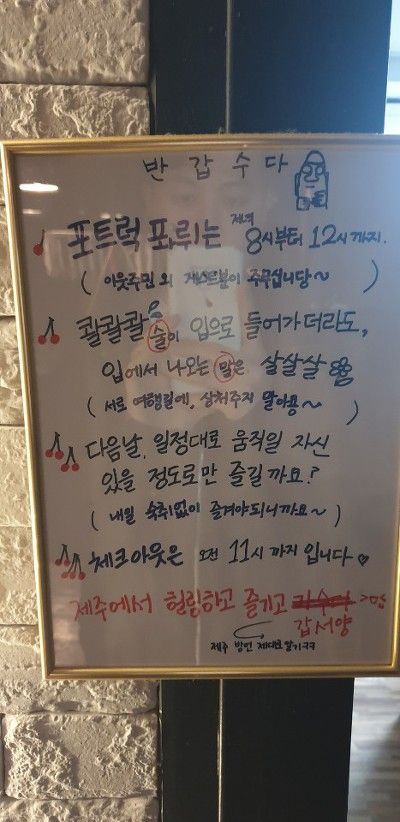 반갑수다
포트럭 포뤼는 저녁 8시부터 12시까지.
( 이웃주민 외 게스트분이 주무십니당~ )
콸콸콸 술이 입으로 들어가더라도,
입에서 나오는 말은 살살살
( 서로 여행길에, 상처주지 말아용~ )
다음날, 일정대로 움직일 자신
있을 정도로만 즐길까요?
( 내일 숙취없이 즐겨야되니까요~ )
체크아웃은 오전 11시까지 입니다
제주에서 힐링하고 즐기고
갑서양
제주 방언 제대로 알기ㅋㅋ